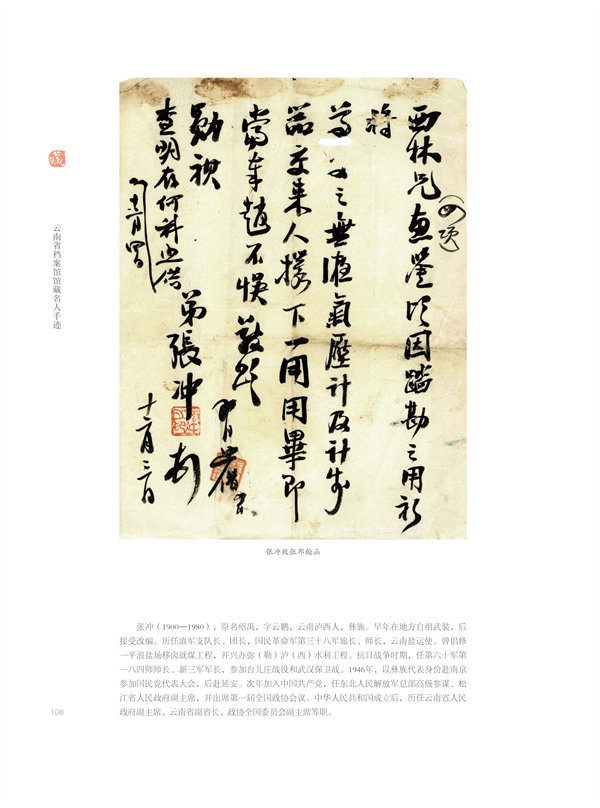 西林兄惠鉴顷因踏勘之用祈
将
之无液气压计及计步
器交来人携下一用用毕即
当奉赵不误敬颂
勋祺
弟张冲
十二月三日
查明存何科照借
十二月四日
藏
云南省档案馆馆藏名人手迹
张冲致张邦翰函
张冲（1900—1980），原名绍禹，字云鹏，云南泸西人，彝族。早年在地方自组武装，后
接受改编。历任滇军支队长、团长，国民革命军第三十八军旅长、师长，云南盐运使。曾倡修
一平浪盐场移卤就煤工程，并兴办弥（勒）泸（西）水利工程。抗日战争时期，任第六十军第
一八四师师长、新三军军长，参加台儿庄战役和武汉保卫战。1946年，以彝族代表身份赴南京
参加国民党代表大会，后赴延安。次年加入中国共产党，任东北人民解放军总部高级参谋、松
江省人民政府副主席，并出席第一届全国政协会议。中华人民共和国成立后，历任云南省人民
政府副主席、云南省副省长、政协全国委员会副主席等职。
108